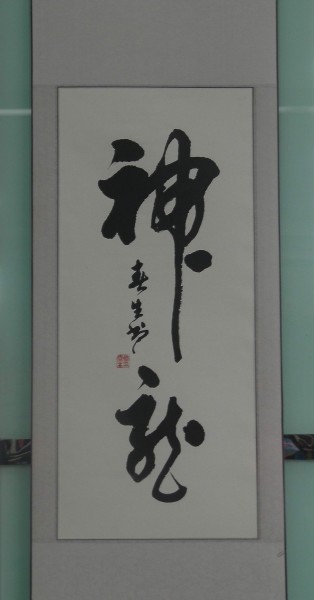 神龍
春生书